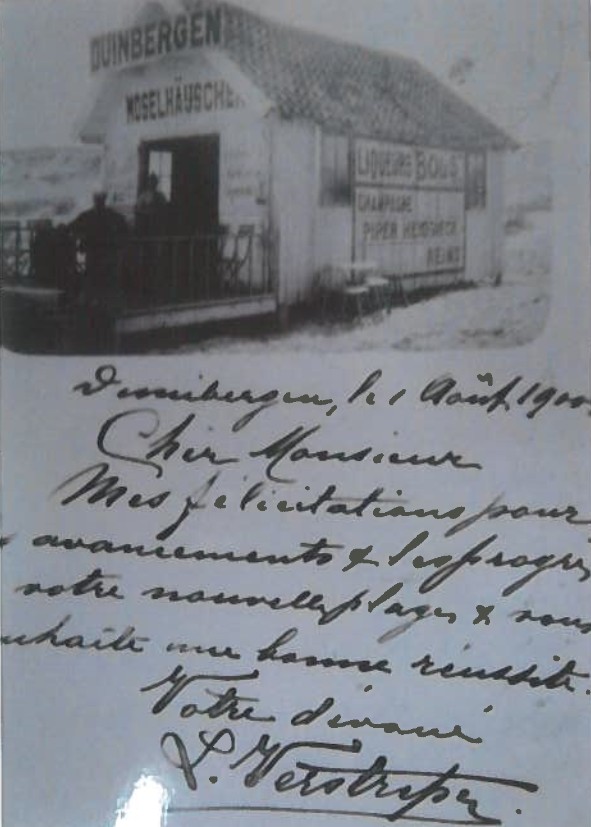 DUINBERGEN
MOSELHÄUSCHEN
LIQUEURS BOLS
CHAMPAGNE
PIPER HEIDSIECK
REIMS
Duinbergen, le 1 Août 1900
Cher Monsieur
Mes félicitations pour
avancements & les progrès
votre nouvelle plage & vous
souhaite une bonne réussite.
Votre dévoué